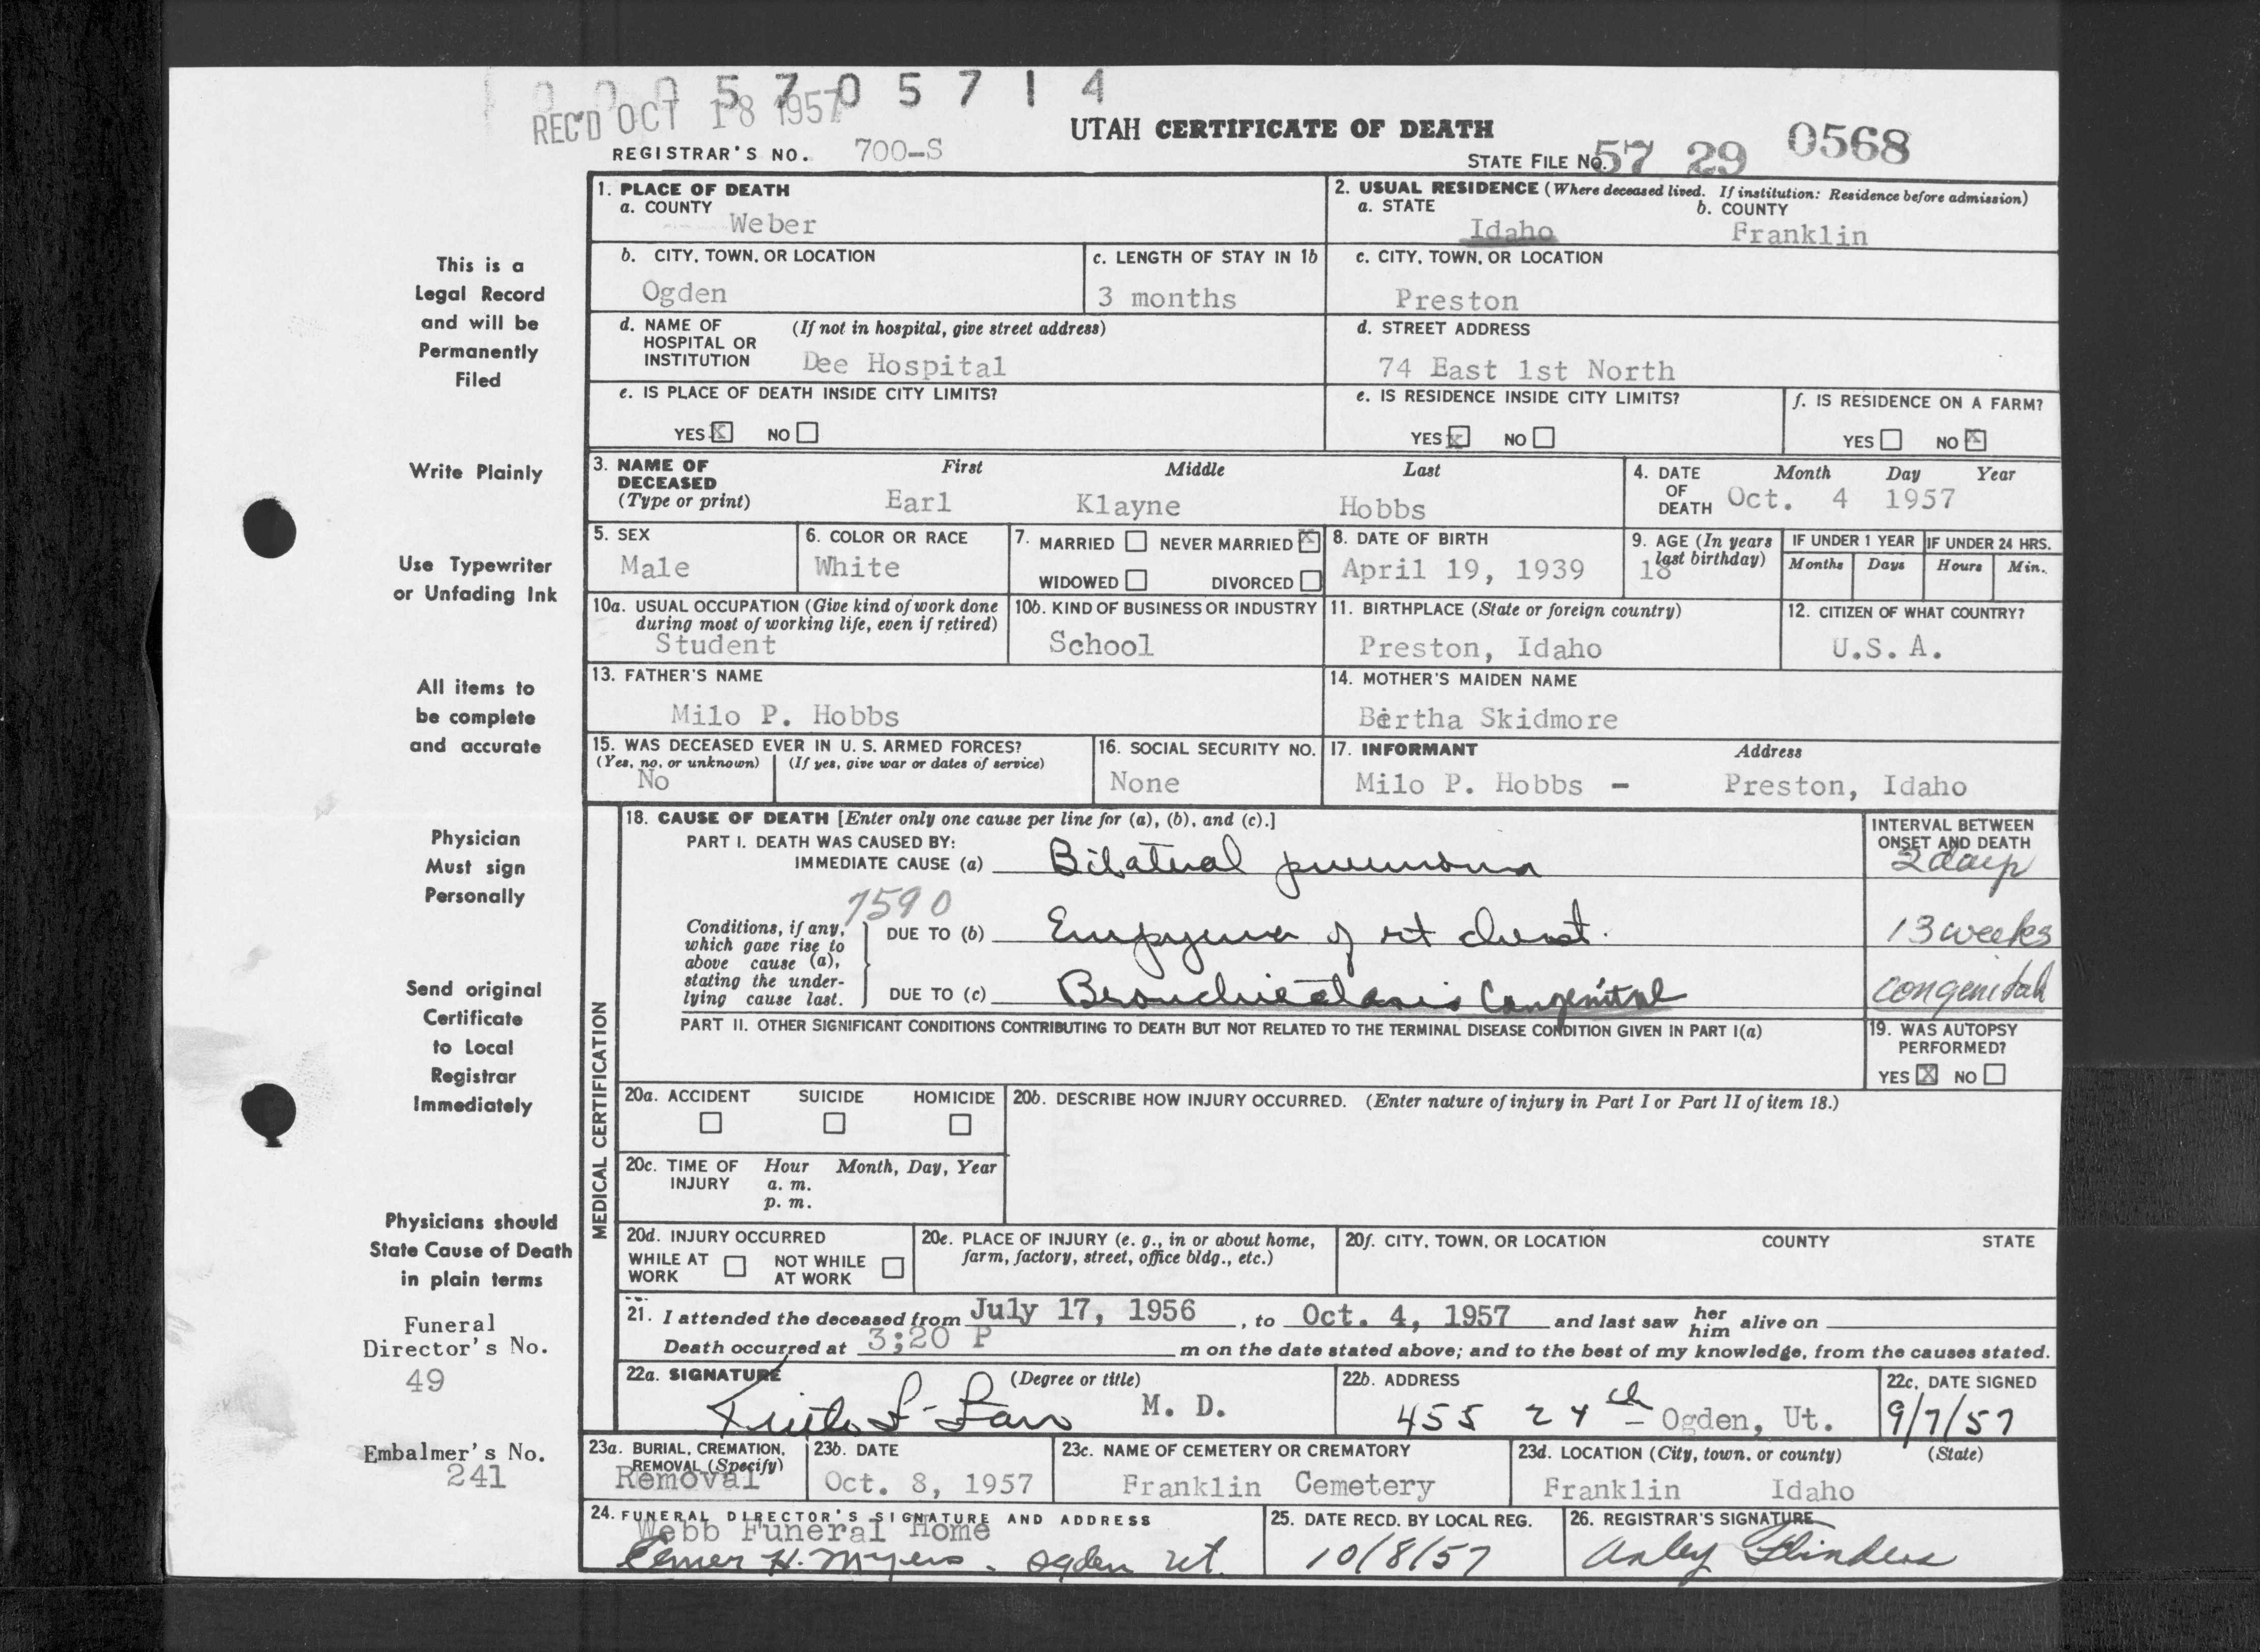 0 0 0 5 7 0 5 7 1 4
REC'D OCT 18 1957
UTAH CERTIFICATE OF DEATH
REGISTRAR'S NO. 700-S
STATE FILE NO. 57 29 0568
This is a
Legal Record
and will be
Permanently
Filed
Write Plainly
Use Typewriter
or Unfading Ink
All items to
be complete
and accurate
Physician
Must sign
Personally
Send original
Certificate
to Local
Registrar
Immediately
Physicians should
State Cause of Death
in plain terms
Funeral
Director's No.
49
Embalmer's No.
241
1. PLACE OF DEATH
a. COUNTY
Weber
2. USUAL RESIDENCE (Where deceased lived. If institution: Residence before admission)
a. STATE b. COUNTY
Idaho Franklin
b. CITY, TOWN, OR LOCATION c. LENGTH OF STAY IN 1b
Ogden 3 months
c. CITY, TOWN, OR LOCATION
Preston
d. NAME OF HOSPITAL OR INSTITUTION (If not in hospital, give street address)
Dee Hospital
d. STREET ADDRESS
74 East 1st North
e. IS PLACE OF DEATH INSIDE CITY LIMITS?
YES X NO
e. IS RESIDENCE INSIDE CITY LIMITS?
YES X NO
f. IS RESIDENCE ON A FARM?
YES NO X
3. NAME OF DECEASED (Type or print) First Middle Last
Earl Klayne Hobbs
4. DATE OF DEATH Month Day Year
Oct. 4 1957
5. SEX
Male
6. COLOR OR RACE
White
7. MARRIED NEVER MARRIED X
WIDOWED DIVORCED
8. DATE OF BIRTH
April 19, 1939
9. AGE (In years last birthday)
18
IF UNDER 1 YEAR IF UNDER 24 HRS.
Months Days Hours Min.
10a. USUAL OCCUPATION (Give kind of work done during most of working life, even if retired)
Student
10b. KIND OF BUSINESS OR INDUSTRY
School
11. BIRTHPLACE (State or foreign country)
Preston, Idaho
12. CITIZEN OF WHAT COUNTRY?
U.S.A.
13. FATHER'S NAME
Milo P. Hobbs
14. MOTHER'S MAIDEN NAME
Bertha Skidmore
15. WAS DECEASED EVER IN U. S. ARMED FORCES?
(Yes, no, or unknown) (If yes, give war or dates of service)
No
16. SOCIAL SECURITY NO.
None
17. INFORMANT Address
Milo P. Hobbs - Preston, Idaho
MEDICAL CERTIFICATION
18. CAUSE OF DEATH [Enter only one cause per line for (a), (b), and (c).]
INTERVAL BETWEEN ONSET AND DEATH
PART I. DEATH WAS CAUSED BY:
IMMEDIATE CAUSE (a) Bilateral pneumonia 2 days
7590
Conditions, if any, which gave rise to above cause (a), stating the underlying cause last.
DUE TO (b) Empyema of rt chest. 13 weeks
DUE TO (c) Bronchiectasis Congenital congenital
PART II. OTHER SIGNIFICANT CONDITIONS CONTRIBUTING TO DEATH BUT NOT RELATED TO THE TERMINAL DISEASE CONDITION GIVEN IN PART I(a)
19. WAS AUTOPSY PERFORMED?
YES X NO
20a. ACCIDENT SUICIDE HOMICIDE
20b. DESCRIBE HOW INJURY OCCURRED. (Enter nature of injury in Part I or Part II of item 18.)
20c. TIME OF INJURY Hour Month, Day, Year
a. m.
p. m.
20d. INJURY OCCURRED
WHILE AT WORK NOT WHILE AT WORK
20e. PLACE OF INJURY (e. g., in or about home, farm, factory, street, office bldg., etc.)
20f. CITY, TOWN, OR LOCATION COUNTY STATE
21. I attended the deceased from July 17, 1956, to Oct. 4, 1957 and last saw her him alive on
Death occurred at 3;20 P m on the date stated above; and to the best of my knowledge, from the causes stated.
22a. SIGNATURE (Degree or title)
M. D.
22b. ADDRESS
455 24th Ogden, Ut.
22c. DATE SIGNED
9/7/57
23a. BURIAL, CREMATION, REMOVAL (Specify)
Removal
23b. DATE
Oct. 8, 1957
23c. NAME OF CEMETERY OR CREMATORY
Franklin Cemetery
23d. LOCATION (City, town, or county) (State)
Franklin Idaho
24. FUNERAL DIRECTOR'S SIGNATURE AND ADDRESS
Webb Funeral Home
Elmer H. Myers - Ogden Ut.
25. DATE RECD. BY LOCAL REG.
10/8/57
26. REGISTRAR'S SIGNATURE
Flinders